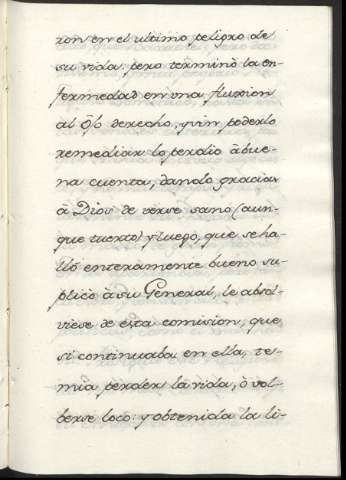 ron en el ultimo peligro de
su vida: pero terminò la en-
fermedad en una fluxion
al ojo derecho, y sin poderlo
remediar lo perdiò à bue-
na cuenta, dando gracias
à Dios de verse sano (aun-
que tuerto) y luego, que se ha-
llò enteramente bueno su-
plicò à su General, le absol-
viese de esta comision, que
si continuaba en ella, te-
mia perder la vida, ò vol-
berse loco: y obtenida la li-